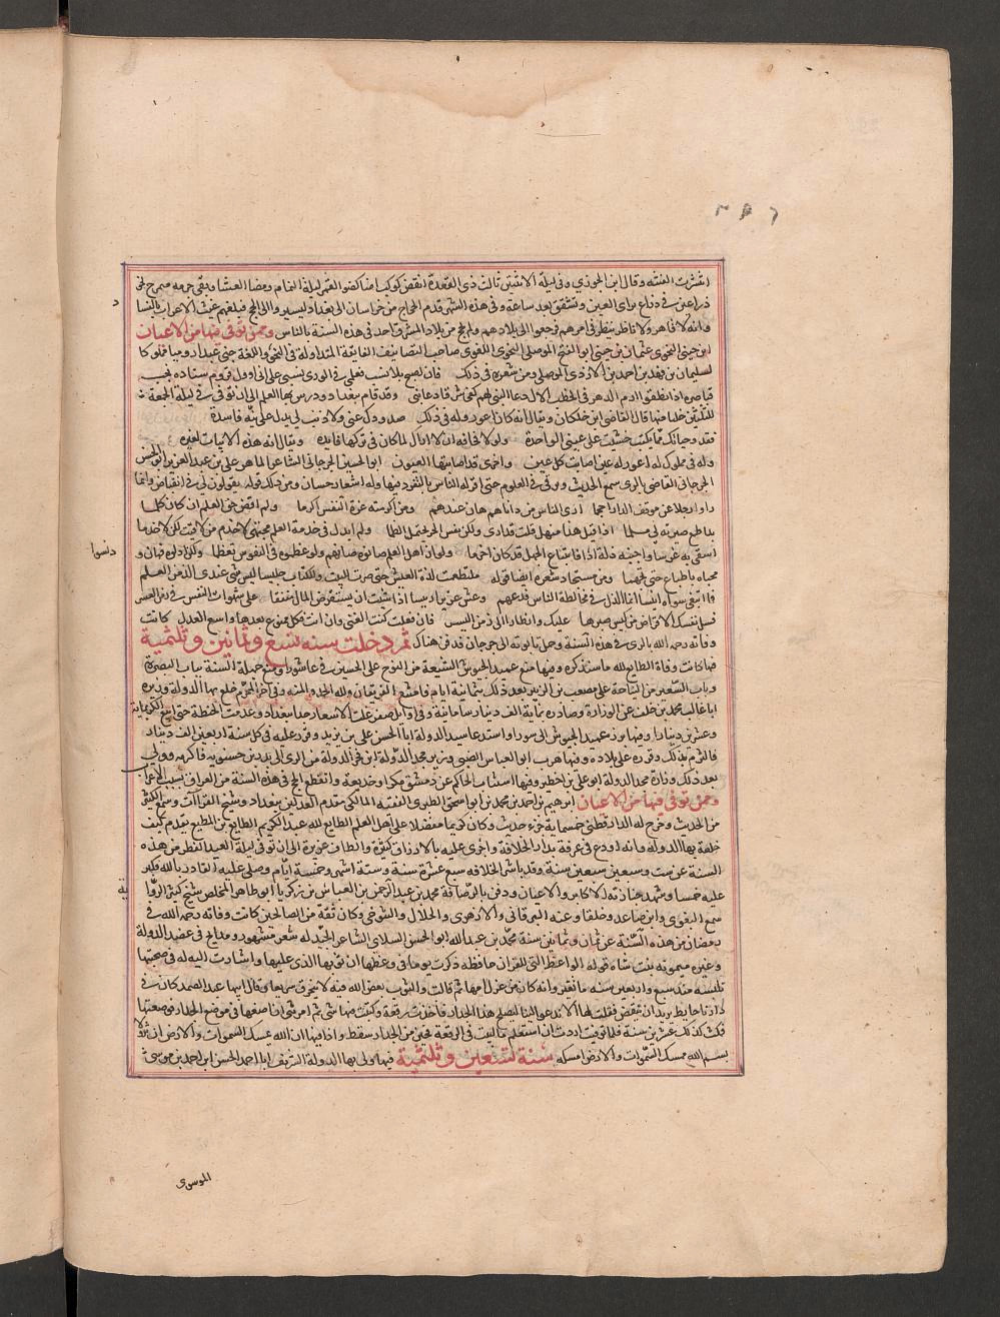 انتشرت الفتنة وقال ابن الجوزي وفي ليلة الاثنين ثالث ذي القعدة انقض كوكب اضاء كضو القمر ليلة التمام ومضا الضيا وبقي جرمه يتموج نحو
ذراعين في ذراع براي العين وتشقق بعد ساعة وفي هذه الشهر قدم الحاج من خراسان الى بغداد ليسيروا الى الحج فبلغهم عبث الاعراب بالفساد
وانه لا ناهر ولا ناظر ينظر في امرهم فرجعوا الى بلادهم ولم يحج من بلاد المشرق احد في هذه السنة بالناس وممن توفي فيها من الاعيان
ابن جني النحوي عثمان بن جني ابو الفتح الموصلي النحوي اللغوي صاحب التصانيف الفايقة المتداولة في النحو واللغة جني عبدا روميا مملوكا
لسليمان بن فهد بن احمد بن الازدي الموصلي ومن شعره في ذلك فان اصبح بلا نسب فعلمي في الورى نسبي على اني اوول قروم سادة نجب
قياصرة اذا نطقوا ارم الدهر في الخطب الاول دعا النبي لهم كفى شرفا دعا نبي وقد قام ببغداد ودرس بها العلم الى ان توفي في ليلة الجمعة
لليلتين خلتا منها قال القاضي ابن خلكان ويقال انه كان اعور وله في ذلك صدودك عني ولا ذنب لي يدل على نية فاسدة
فقد وحياتك مما بكيت خشيت على عيني الواحدة ولولا مخافة ان لا اراك لما كان في تركها فايده ويقال انه هذه الابيات لغيره
وله في مملوك له اعور له عين اصابت كل عين واخرى قد اصابتها العيون ابو الحسين الجرجاني الشاعر الماهر علي بن عبد العزيز ابو الحسن
الجرجاني القاضي بالري سمع الحديث وترقى في العلوم حتى اقر له الناس بالتفرد فيها وله اشعار حسان ومن ذلك قوله يقولون لي فيك انقباض وانما
راوا رجلا عن موقف الذل احجما ارى الناس من داناهم هان عندهم ومن اكرمته عزة النفس اكرما ولم اقض حق العلم ان كان كلما
بدا طمع صيرته لي سلما اذا قيل هذا منهل قلت قد ارى ولكن نفس الحر تحتمل الظما ولم ابتذل في خدمة العلم مهجتي لاخدم من لاقيت لكن لاخدما
اسقى به غرسا واجنيه ذلة اذا فاتباع الجهل قد كان احزما ولو ان اهل العلم صانوه صانهم ولو عظموه في النفوس لعظما ولكن اذلوه فهان و
دنسوا
محياه بالاطماع حتى تجهما ومن مستجاد شعره ايضا قوله ما تطعمت لذة العيش حتى صرت للبيت والكتاب جليسا ليس شي عندي الذ من العلم
فما ابتغي سواه انيسا انما الذل في مخالطة الناس فدعهم وعش عزيزا رييسا اذا شيت ان تستقرض المال منفقا على شهوات النفس في زمن العسر
فسل نفسك الاقراض من كيس صبرها عليك وانظارا الى زمن اليسر فان فعلت كنت الغني وان ابت فكل ممنوع بعدها واسع العذل كانت
وفاته رحمه الله بالري في هذه السنة وحمل تابوته الى جرجان قد فن هناك ثم دخلت سنة تسع وثمانين وثلثمية
فيها كانت وفاة الطايع لله ما سنذكره وفيها منع عميد الجيوش الشيعة من النوح على الحسين في عاشورا ومنع جهلة السنة بباب البصرة
وباب الشعير من النياحة على مصعب بن الزبير بعد ذلك بثمانية ايام فامتنع الفريقان ولله الحمد والمنه وفي آخر المحرم خلع بها الدولة وزيره
ابا غالب محمد بن خلف عن الوزارة وصادره بماية الف دينار سامانية وفي اوايل صفر غلت الاسعار جدا ببغداد وعدمت الحنطة حتى بيع الكر بماية
وعشرين دينارا وفيها برز عميد الجيوش الى سورا واستدعا سيد الدولة ابا الحسن علي بن مزيد وقرر عليه في كل سنة اربعين الف دينار
فالتزم بذلك وقرره على بلاده وفيها هرب ابو العباس الضبي وزير مجد الدولة ابن فخر الدولة من الري الى بدر بن حسنويه فاكرمه وولي
بعد ذلك وزارة مجد الدولة ابو علي بن الخطير وفيها استناب الحاكم عن دمشق مكرا وخديعة وانقطع الحج في هذه السنة من العراق بسبب الاعراب
وممن توفي فيها من الاعيان ابرهيم بن احمد بن محمد بن ابو اسحق الطبري الفقيه المالكي مقدم المعدلين ببغداد وشيخ القراآت وسمع الكثير
من الحديث وخرج له الدارقطني خمسماية جزء حديث وكان كريما مفضلا على اهل العلم الطايع لله عبد الكريم الطايع بن المطيع تقدم كيف
خلعه بها الدولة وانه اودع في غرفة بدار الخلافة واجرى عليه بالارزاق كثيرة والطاف غزيرة الى ان توفي ليلة العيد الفطر من هذه
السنة عن ست وسبعين سبعين سنة وقد باشر الخلافه سبع عشرة سنة وستة اشهر وخمسة ايام وصلى عليه القادر بالله فكبر
عليه خمسا وشهد جنازته الاكابر والاعيان ودفن بالرصافة محمد بن عبد الرحمن بن العباس بن زكريا ابو طاهر المخلص شيخ كثير الروا
ية
سمع البغوي وابن صاعد وخلقا وعنه البرقاني والازهري والخلال والتنوخي وكان ثقة من الصالحين كانت وفاته رحمه الله في
رمضان من هذه السنة عن ثمان وثمانين سنة محمد بن عبد الله ابو الحسن السلامي الشاعر الجيد له شعر مشهور ومدايح في عضد الدولة
وغيره ميمونه بنت شاه قوله الواعظة التي للقرآن حافظه ذكرت يوما في وعظها ان ثوبها الذي عليها واشارت اليه له في صحبتها
تلبسه منذ سبع واربعين سنه ما تغير وانه كان من غزل امها ثم قالت والثوب بعض الله فيه لا يتخرق سريعا وقال ابنها عبد الصمد كان في
دارنا حايط يريد ان ينقض فقلت لها الا ندعوا البنا ليصلح هذا الجدار فاخذت رقعة وكتبت فيها شي ثم امرتني ان اضعها في موضع الجدار فوضعتها
فمكث كذلك عشرين سنة فلما توفيت اردت ان استعلم ما كتبت في الرقعة فحين من الجدار سقط واذا فيها ان الله يمسك السموات والارض ان تزولا
بسم الله ممسك السموات والارض امسكه سنة تسعين وثلثمية فيها ولى بها الدولة الشريف ابا احمد الحسن ابن احمد بن موسى
الموسوي